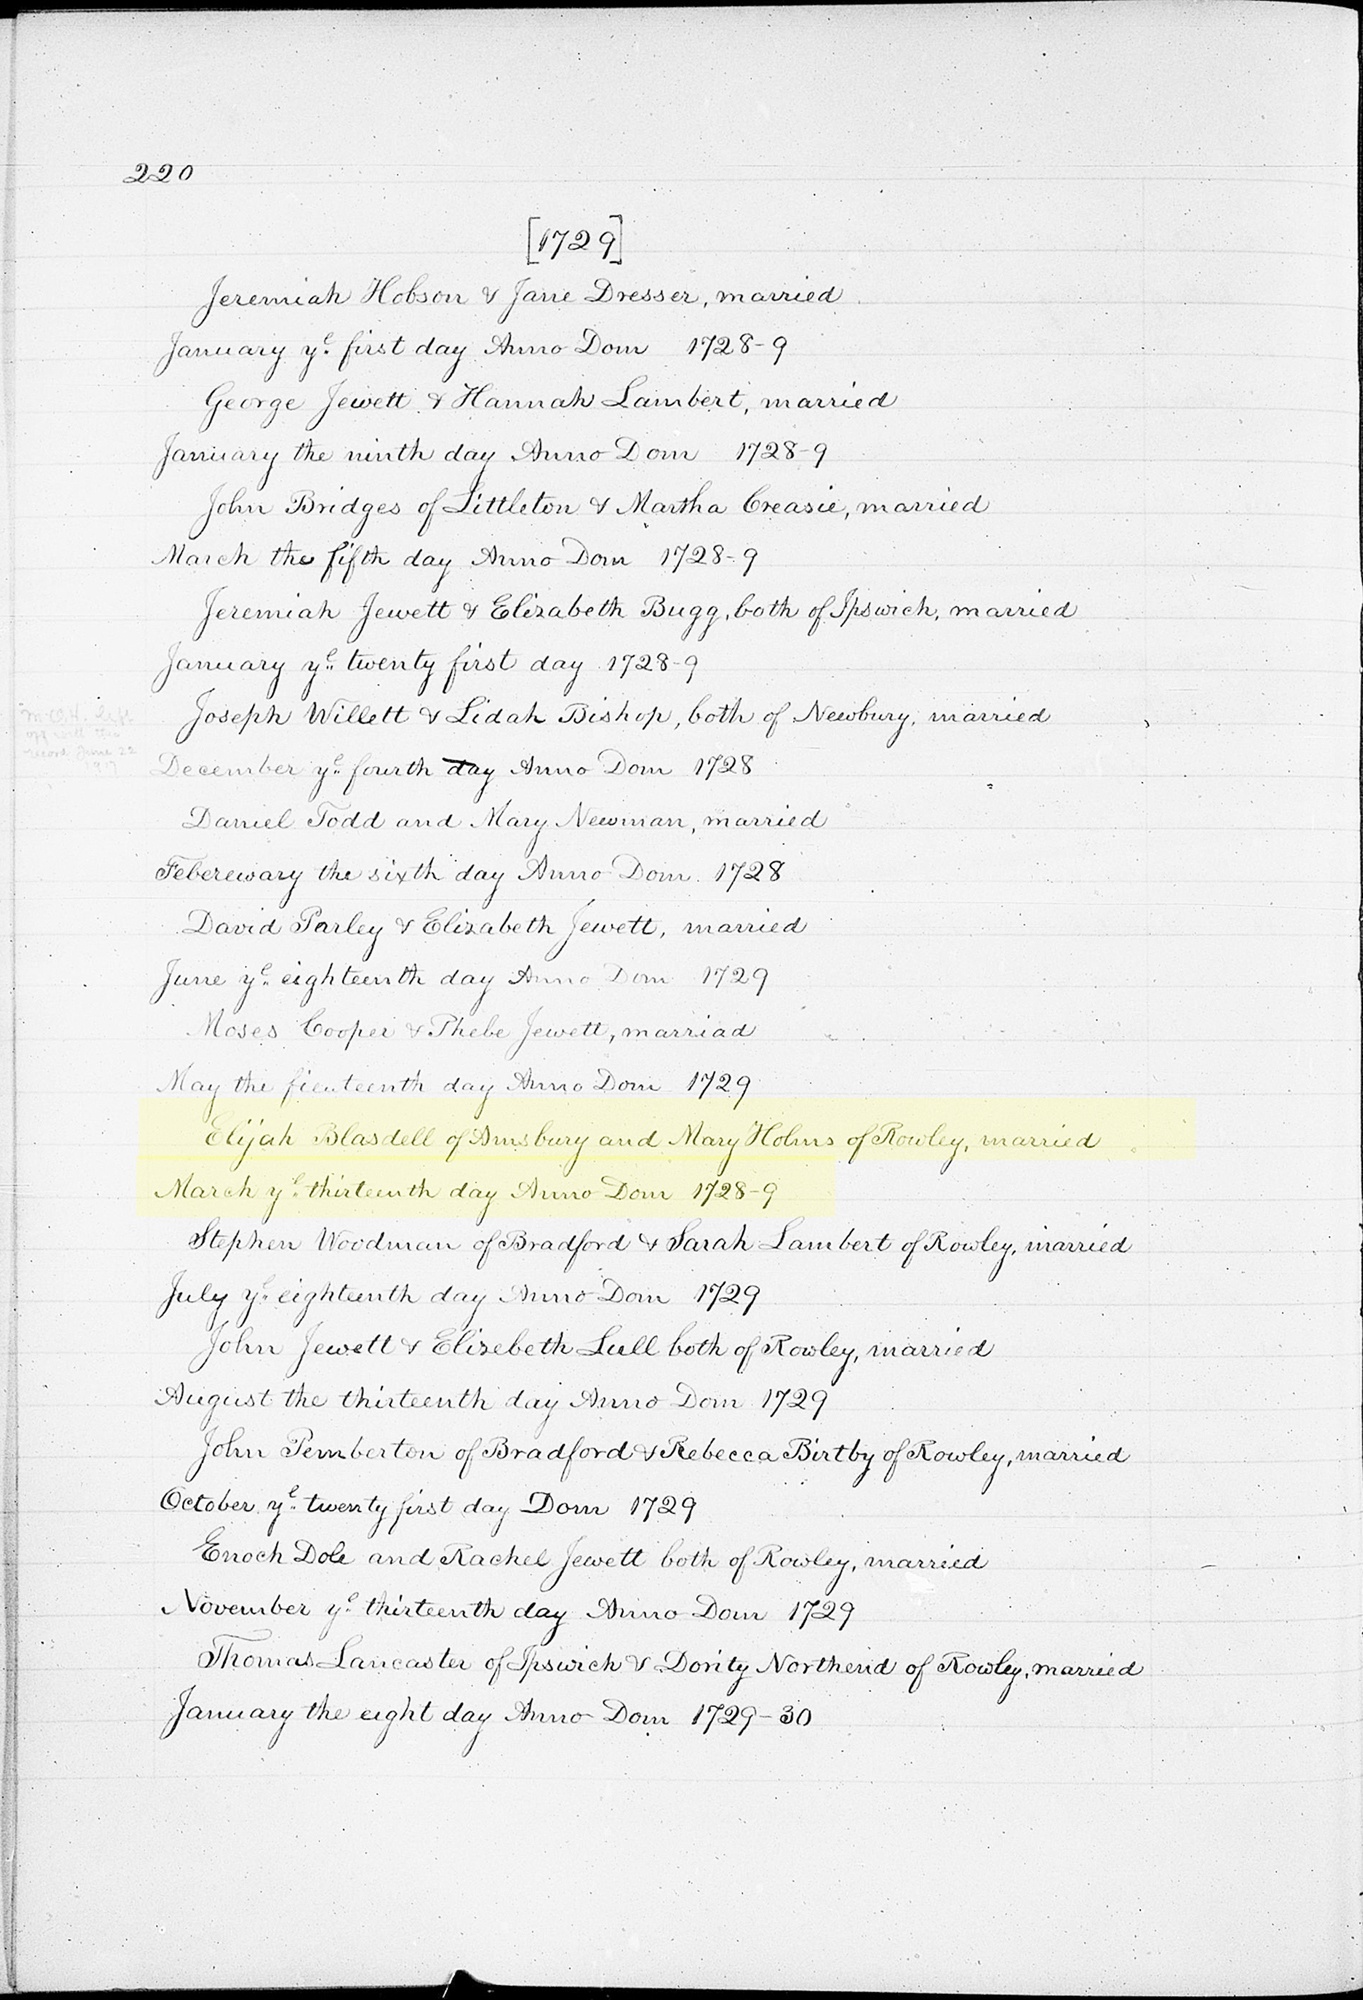 220
[1729]
Jeremiah Hobson & Jane Dresser, married
January yᵉ first day Anno Dom 1728-9
George Jewett & Hannah Lambert, married
January the ninth day Anno Dom 1728-9
John Bridges of Littleton & Martha Creasie, married
March the fifth day Anno Dom 1728-9
Jeremiah Jewett & Elizabeth Bugg, both of Ipswich, married
January yᵉ twenty first day 1728-9
Joseph Willett & Lidah Bishop, both of Newbury, married
December yᵉ fourth day Anno Dom 1728
Daniel Todd and Mary Newman, married
Feberewary the sixth day Anno Dom 1728
David Parley & Elizabeth Jewett, married
June yᵉ eighteenth day Anno Dom 1729
Moses Cooper & Phebe Jewett, marriad
May the day Anno Dom 1729
Elijah Blasdell of Amsbury and Mary Holms of Rowley, married
March yᵉ thirteenth day Anno Dom 1728-9
Stephen Woodman of Bradford & Sarah Lambert of Rowley, married
July yᵉ eighteenth day Anno Dom 1729
John Jewett & Elizebeth Lull both of Rowley, married
August the thirteenth day Anno Dom 1729
John Pemberton of Bradford & Rebecca Birtby of Rowley, married
October yᵉ twenty first day Dom 1729
Enoch Dole and Rachel Jewett both of Rowley, married
November yᵉ thirteenth day Anno Dom 1729
Thomas Lancaster of Ipswich & Dority Northend of Rowley, married
January the eight day Anno Dom 1729-30
left
off with this
record June 22